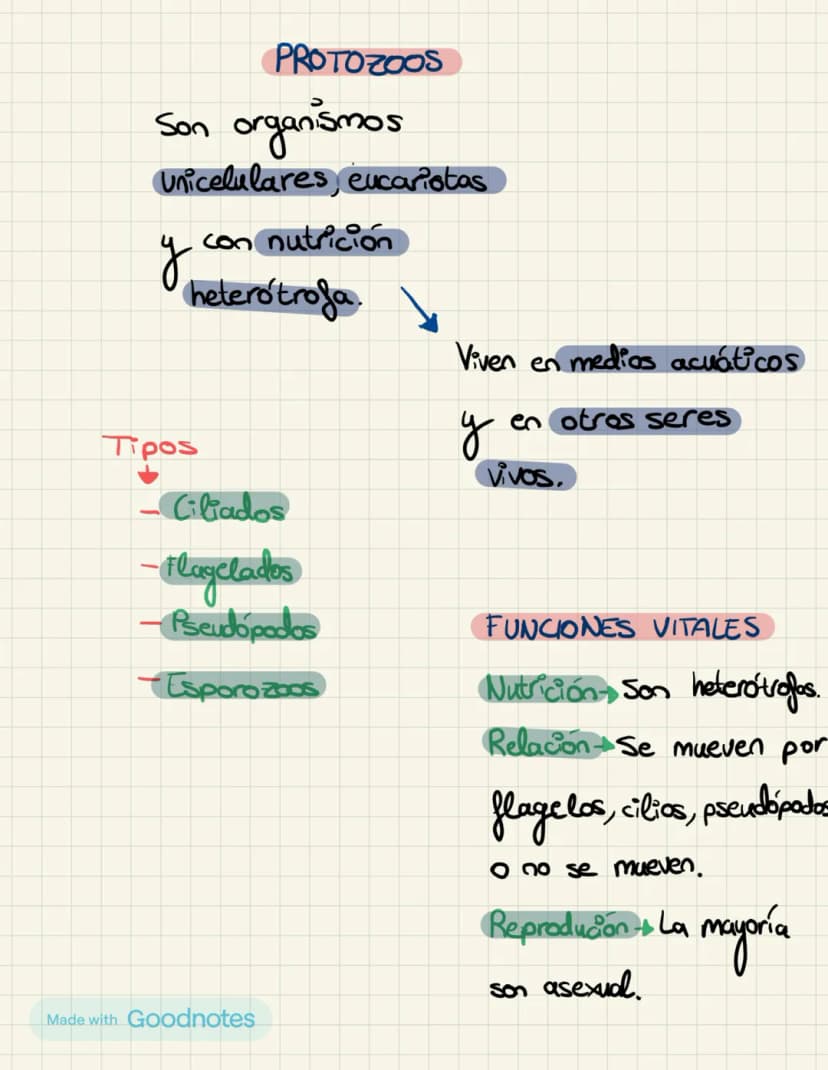 PROTOZOOS
Son organismos
unicelulares, eucariotas
y con nutrición
heterótrofa.
Viven en medios acuáticos
y en otros seres
vivos.
Tipos
- Ciliados
- Flagelados
- Pseudópodos
- Esporozoos
FUNCIONES VITALES
Nutrición → Son heterótrofos.
Relación → Se mueven por
flagelos, cilios, pseudópodos
o no se mueven.
Reprodución → La mayoría
son asexual.
Made with Goodnotes